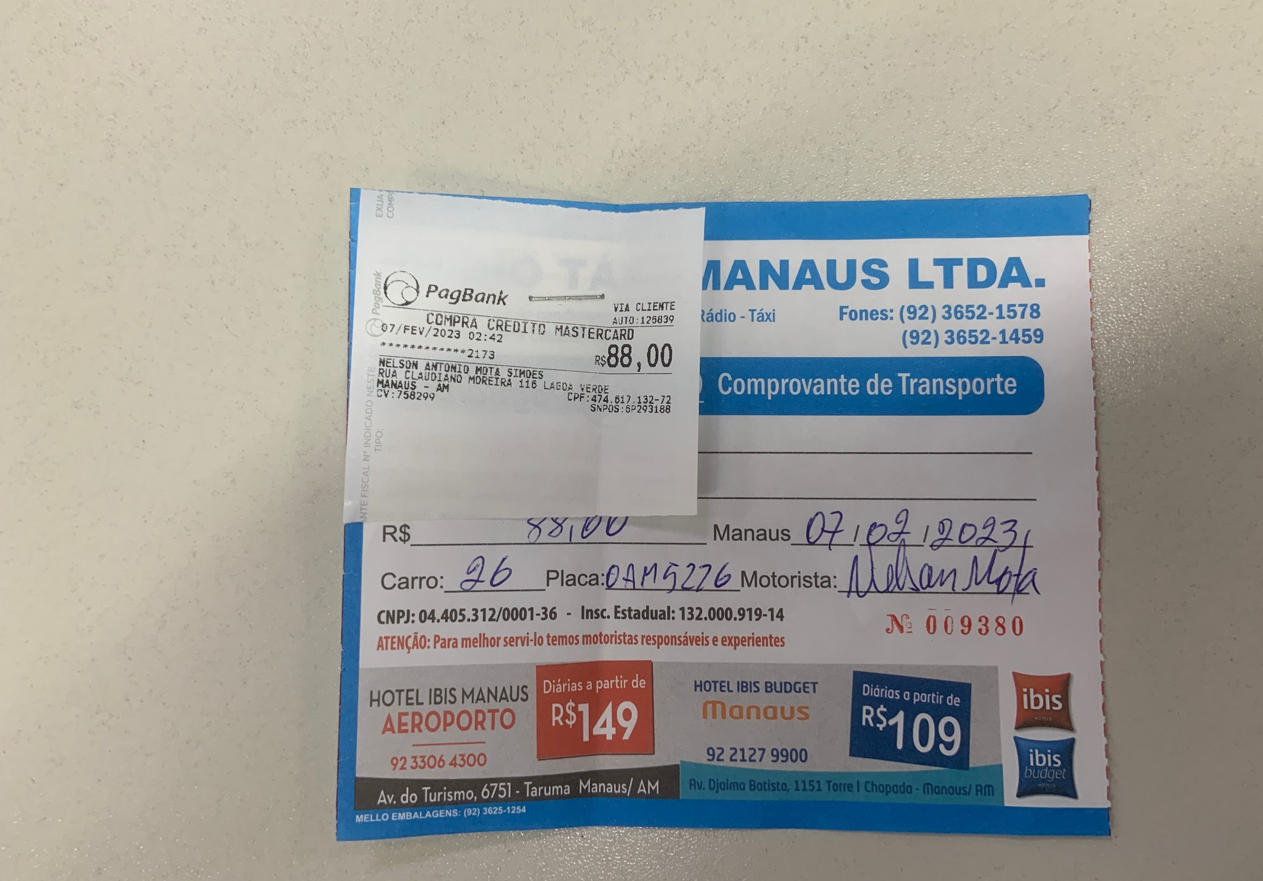 PagBank
VIA CLIENTE
AUTO:126839
COMPRA CREDITO MASTERCARD
07/FEV/2023 02:42
***********2173
R$88,00
NELSON ANTONIO MOTA SIMOES
RUA CLAUDIANO MOREIRA 116 LAGOA VERDE
MANAUS - AM
CPF:474.617.132-72
CV:758299
SNPOS:6P293188
PagBank
ANTE FISCAL Nº INDICADO NESTE
TIPO:
MANAUS LTDA.
Rádio - Táxi
Fones: (92) 3652-1578
(92) 3652-1459
Comprovante de Transporte
R$ 88,00 Manaus 07/02/2023
Carro: 26 Placa: OAM5276 Motorista: Nelson Mota
CNPJ: 04.405.312/0001-36 - Insc. Estadual: 132.000.919-14
Nº 009380
ATENÇÃO: Para melhor servi-lo temos motoristas responsáveis e experientes
HOTEL IBIS MANAUS
AEROPORTO
92 3306 4300
Diárias a partir de
R$149
Av. do Turismo, 6751 - Taruma Manaus/ AM
HOTEL IBIS BUDGET
Manaus
92 2127 9900
Diárias a partir de
R$109
Av. Djalma Batista, 1151 Torre I Chapada - Manaus/ AM
ibis
HOTELS
ibis
budget
HOTELS
MELLO EMBALAGENS: (92) 3625-1254